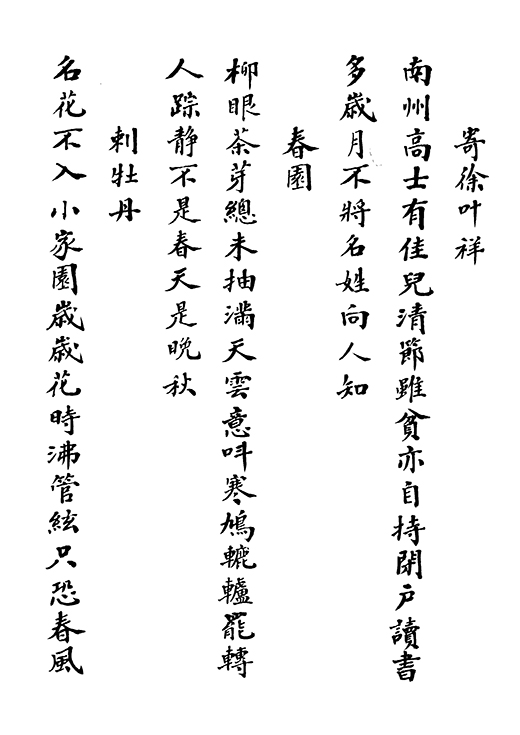 寄徐叶祥
南州高士有佳兒清節雖貧亦自持閉戶讀書
多歲月不將名姓向人知
春園
柳眼茶芽總未抽滿天雲意叫寒鳩轆轤罷轉
人踪静不是春天是晚秋
刺牡丹
名花不入小家園歲歲花時沸管絃只恐春風